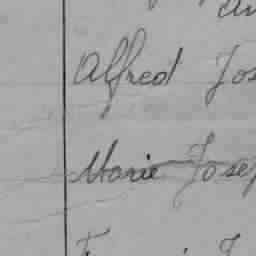 Alfred Jos
Marie Josep